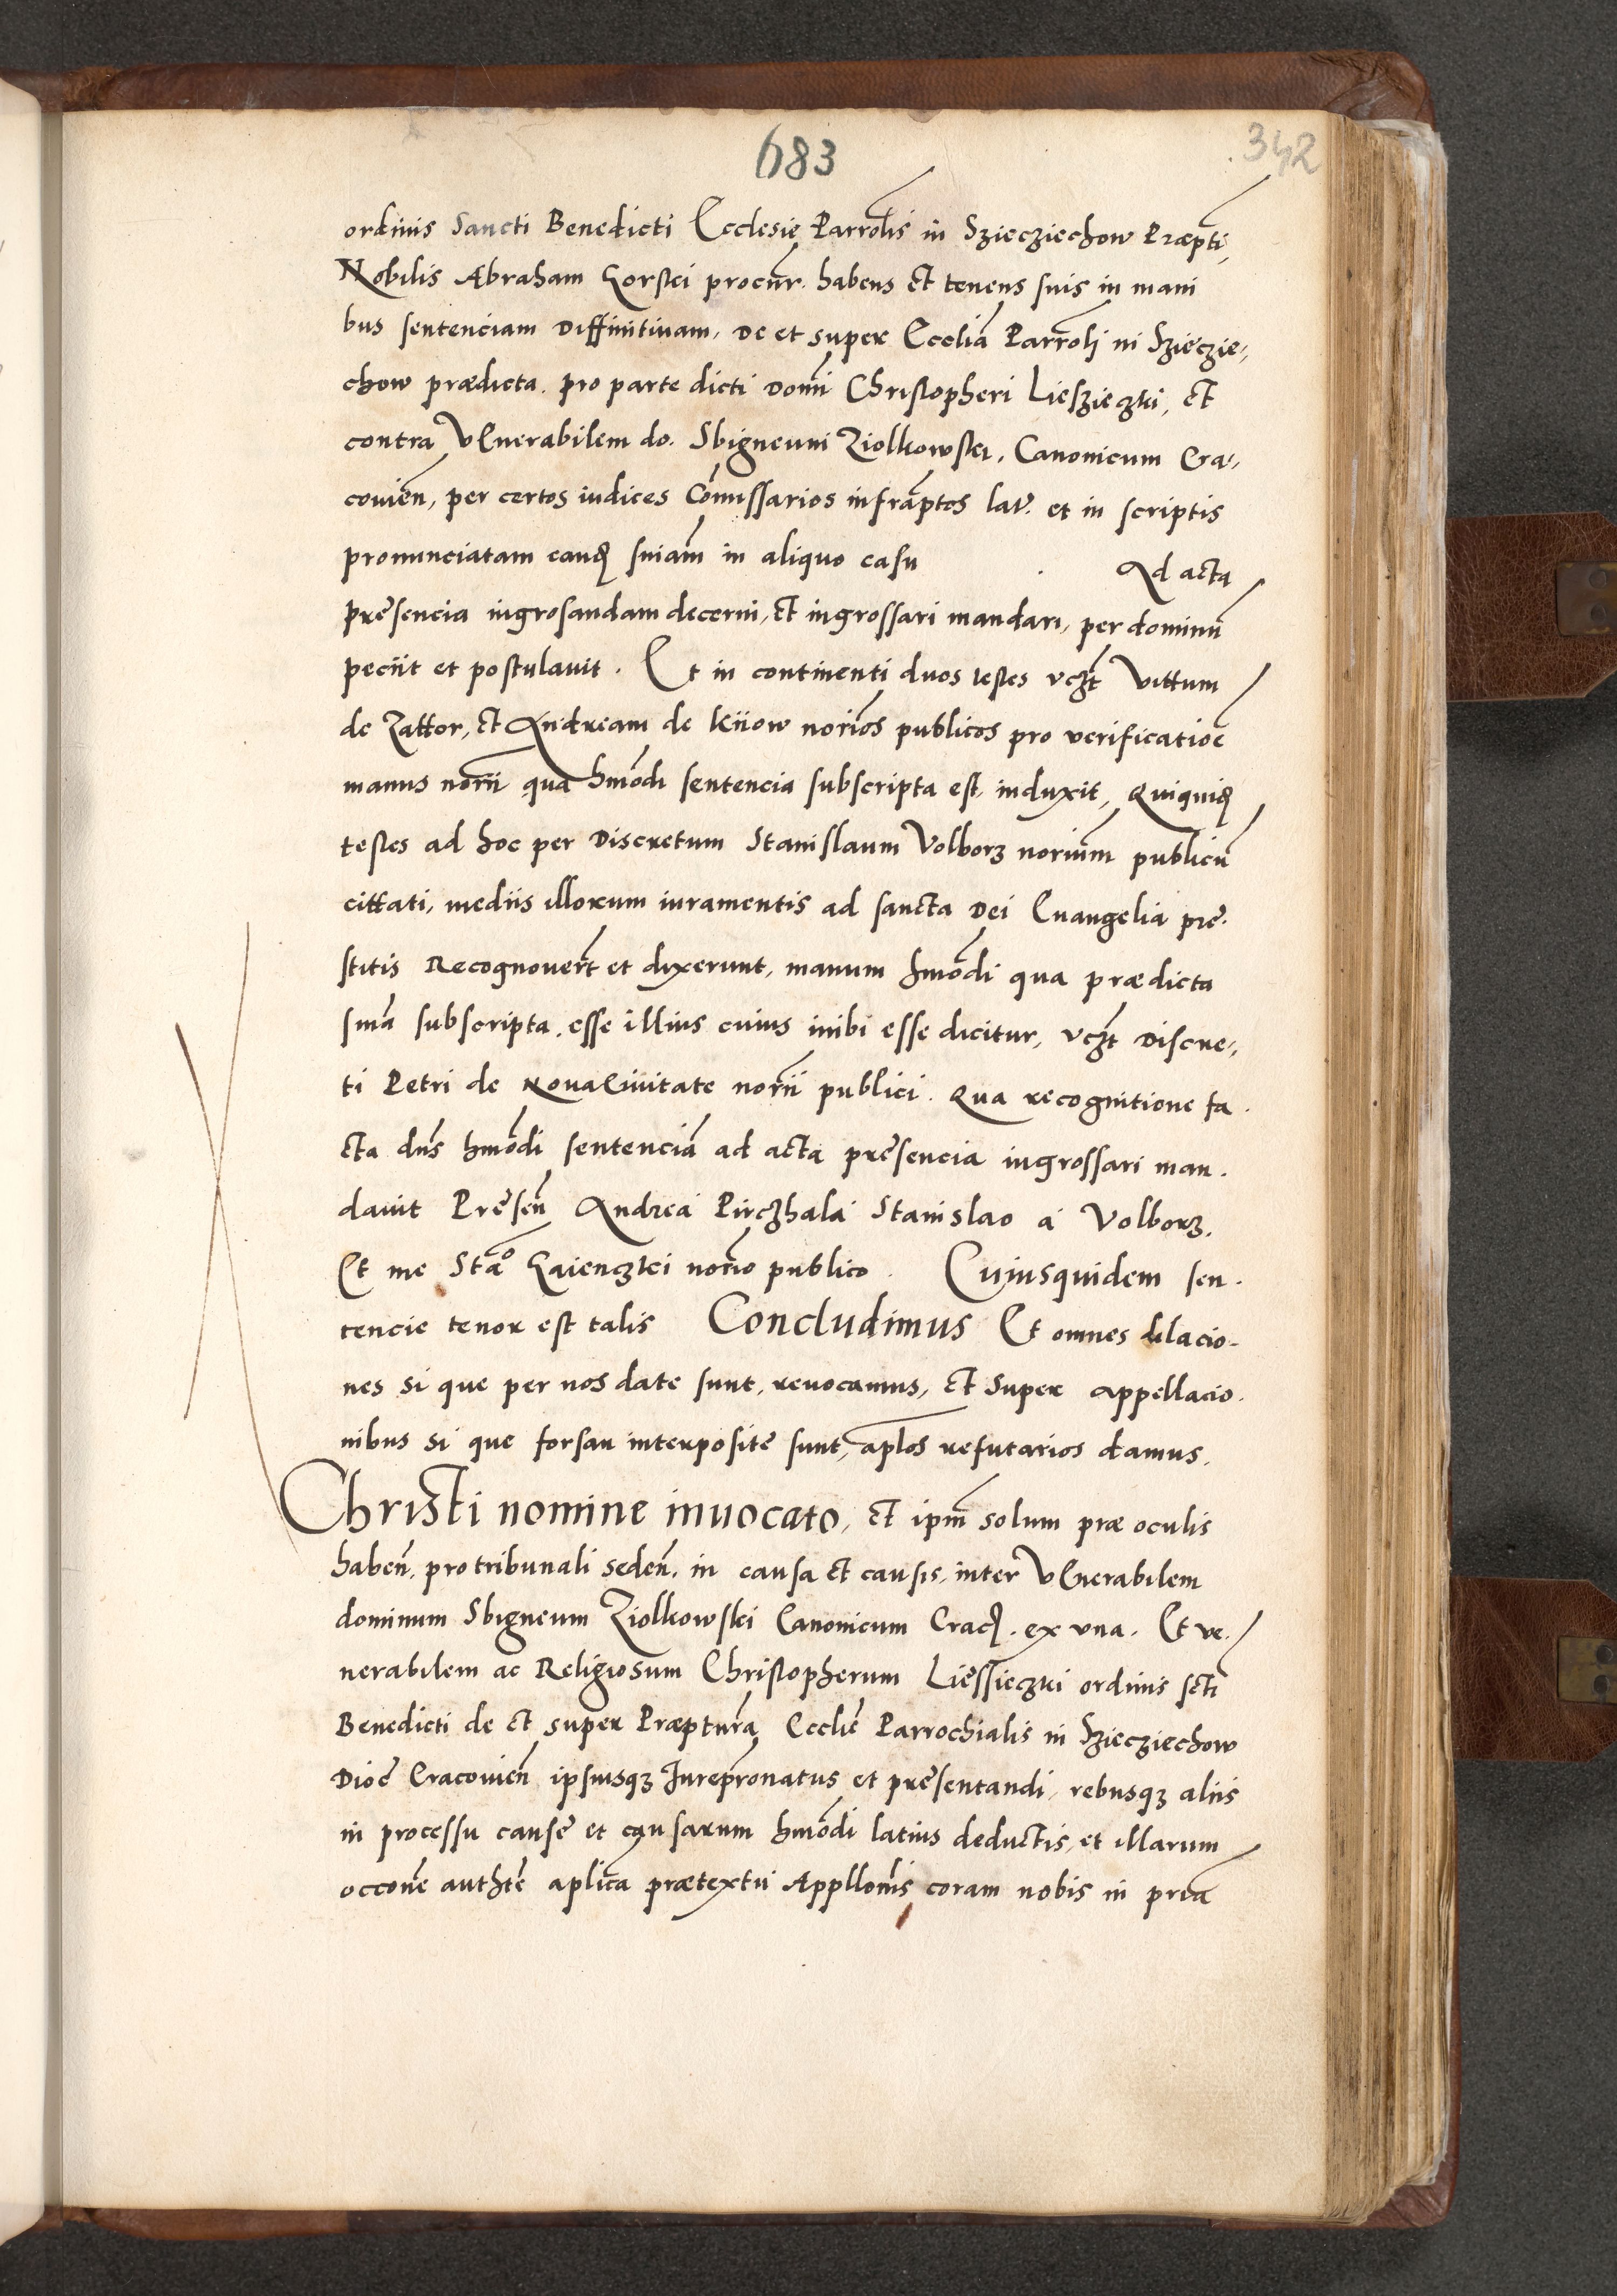 683
342
ordinis Sancti Benedicti Ecclesię Parrolis in Sziecziechow Præpti,
Nobilis Abraham Gorskj procur. habens et tenens suis in mani
bus sentenciam Diffinitiuam, De et super Eccliã Parrolj in Szieczie,
chow prædicta. pro parte dicti Domi Christopheri Lieszieczki, et
contra Venerabilem do. Sbigneum Ziolkowskj. Canonicum Cra,
couien, per certos iudices Cõmissarios infrãptos lat. et in scriptis
pronunciatam eandẽ sniam in aliquo casu Ad acta
presencia ingrosandam decerni, et ingrossari mandari, per dominũ
peciit et postulauit. Et in continenti duos testes vczt Vittum
de Zattor, et Andream de Kiiow norios publicos pro verificatioẽ
manus norii qua hmõdi sentencia subscripta est, induxit, Quiquidẽ
testes ad hoc per Discretum Stanislaum Volborz noriũm publicũ
cittati, mediis illorum iuramentis ad sancta Dei Euangelia pre.
stitis Recognouert et dixerunt, manum hmõdi qua prædicta
snia subscripta. esse illius cuius inibi esse dicitur, vczt Discre,
ti Petri de Noua Ciuitate norii publici. Qua recognitione fa.
cta dns hmõdi sentenciã ad acta presencia ingrossari man.
dauit Presen Andrea Pirczhala Stanislao a Volborz.
Et me Stãº Gaienczkj norio publico. Cuiusquidem sen.
tencie tenor est talis Concludimus Et omnes dilacio-
nes si que per nos date sunt, reuocamus, et Super appellacio.
nibus si que forsan interposite sunt, aplos refutarios damus.
Christi nomine inuocato, et ipm solum præ oculis
haben, pro tribunali seden, in causa et causis, inter Venerabilem
dominum Sbigneum Ziolkowski Canonicum Crac. ex vna. Et ve.
nerabilem ac Religiosum Christopherum Liessieczki ordinis scti
Benedicti de et super Præpturã Ecclie Parrochialis in Szieczechow
Dioc Cracouien ipsiusqz Jurepronatus et presentandi, rebusqz aliis
in processu cause et causarum hmõdi latius deductis, et illarum
occone authte aplica prætextu Appllonis coram nobis in pria